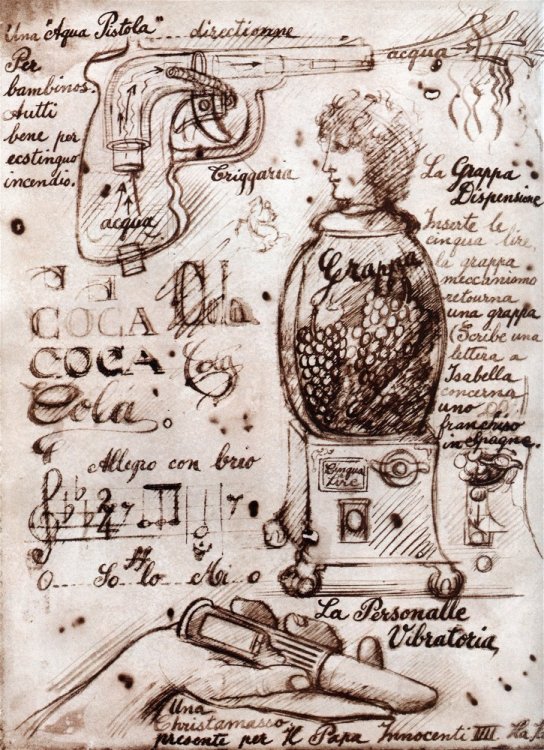 Una "Aqua Pistola"....directionne
Per
bambinos.
Autti
bene per
ecstinguo
incendio.
acqua
Triggaria
acqua
La Grappa
Dispensione
Inserte le
cinqua lire,
la grappa
meccanismo
retourna
una grappa
(Scribe una
lettera a
Isabella
concerna
uno
franchiso
in espagna.
Grappa
Cinqua
Lire
COCA
COCA
Cola
Cola.
Allegro con brio
2
4
7
7
O....So lo Mi o
La Personalle
Vibratoria
Una
Christamasso
presente per Il Papa Innocenti IIII. Ha